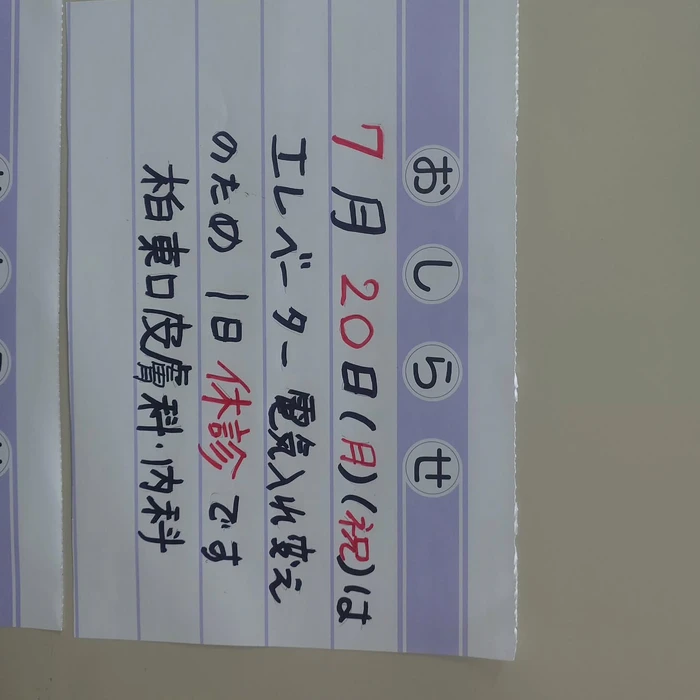 おしらせ
7月20日(月)(祝)は
エレベーター電気入れ変え
のため1日休診です
柏東口皮膚科・内科